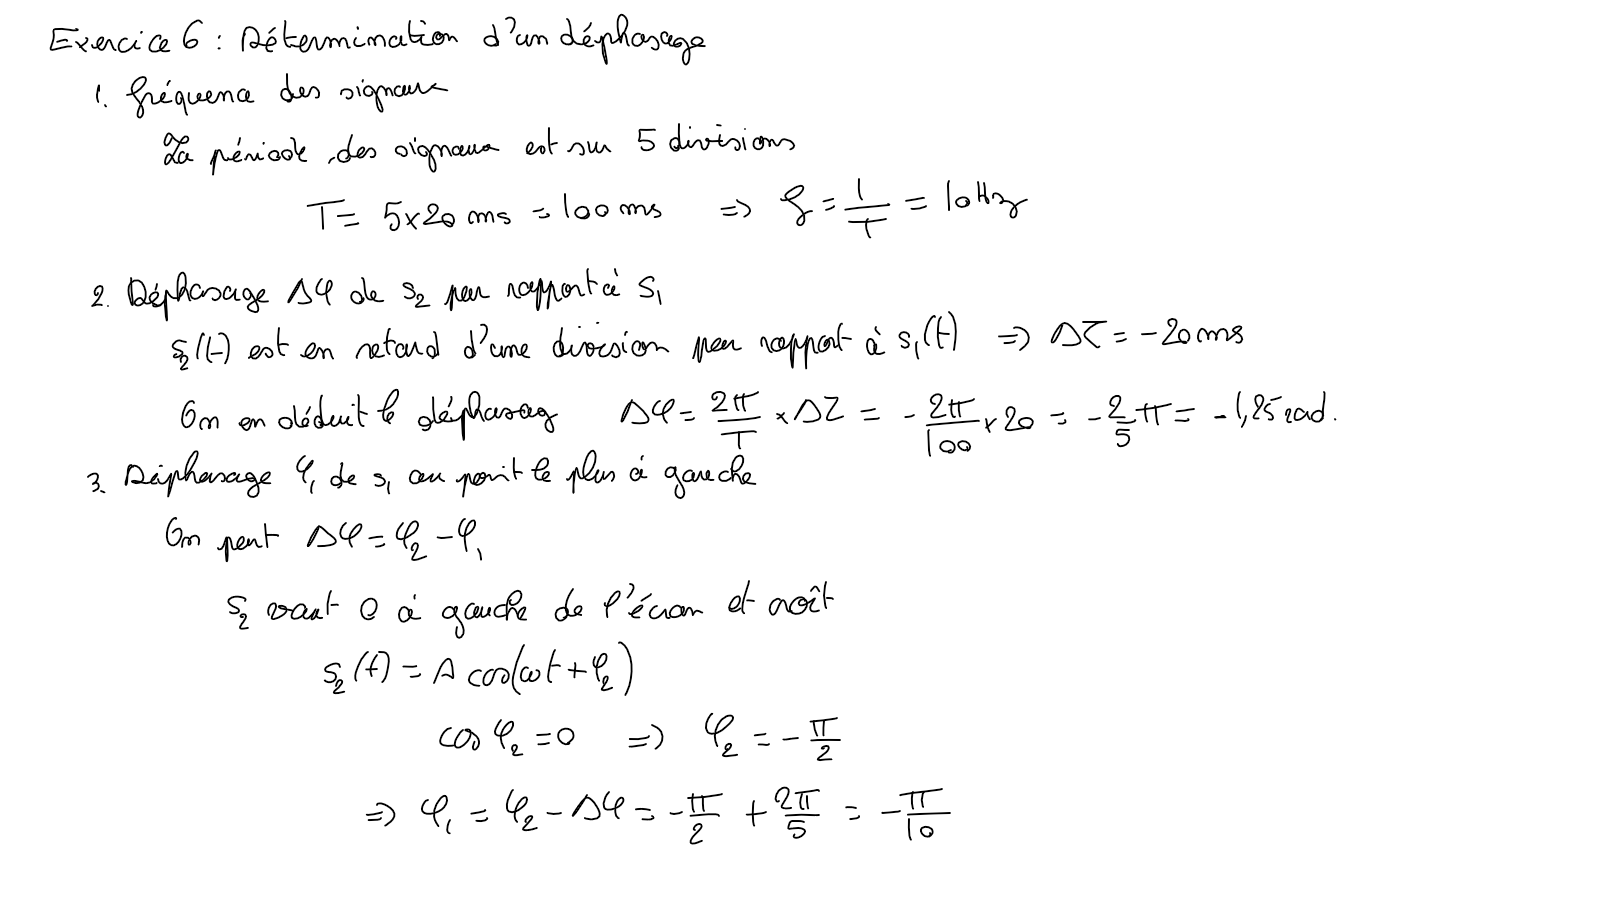 Exercice 6 : Détermination d'un déphasage
1. fréquence des signaux
La période des signaux est sur 5 divisions
T = 5×20 ms = 100 ms => f = 1/T = 10 Hz
2. Déphasage Δφ de s₂ par rapport à s₁
s₂(t) est en retard d'une division par rapport à s₁(t) => Δτ = -20 ms
On en déduit le déphasag Δφ = 2π/T × Δτ = - 2π/100 × 20 = - 2/5 π = -1,25 rad.
3. Déphasage φ₁ de s₁ au point le plus à gauche
On peut Δφ = φ₂ - φ₁
s₂ vaut 0 à gauche de l'écran et croît
s₂(t) = A cos(ωt + φ₂)
cos φ₂ = 0 => φ₂ = - π/2
=> φ₁ = φ₂ - Δφ = - π/2 + 2π/5 = - π/10